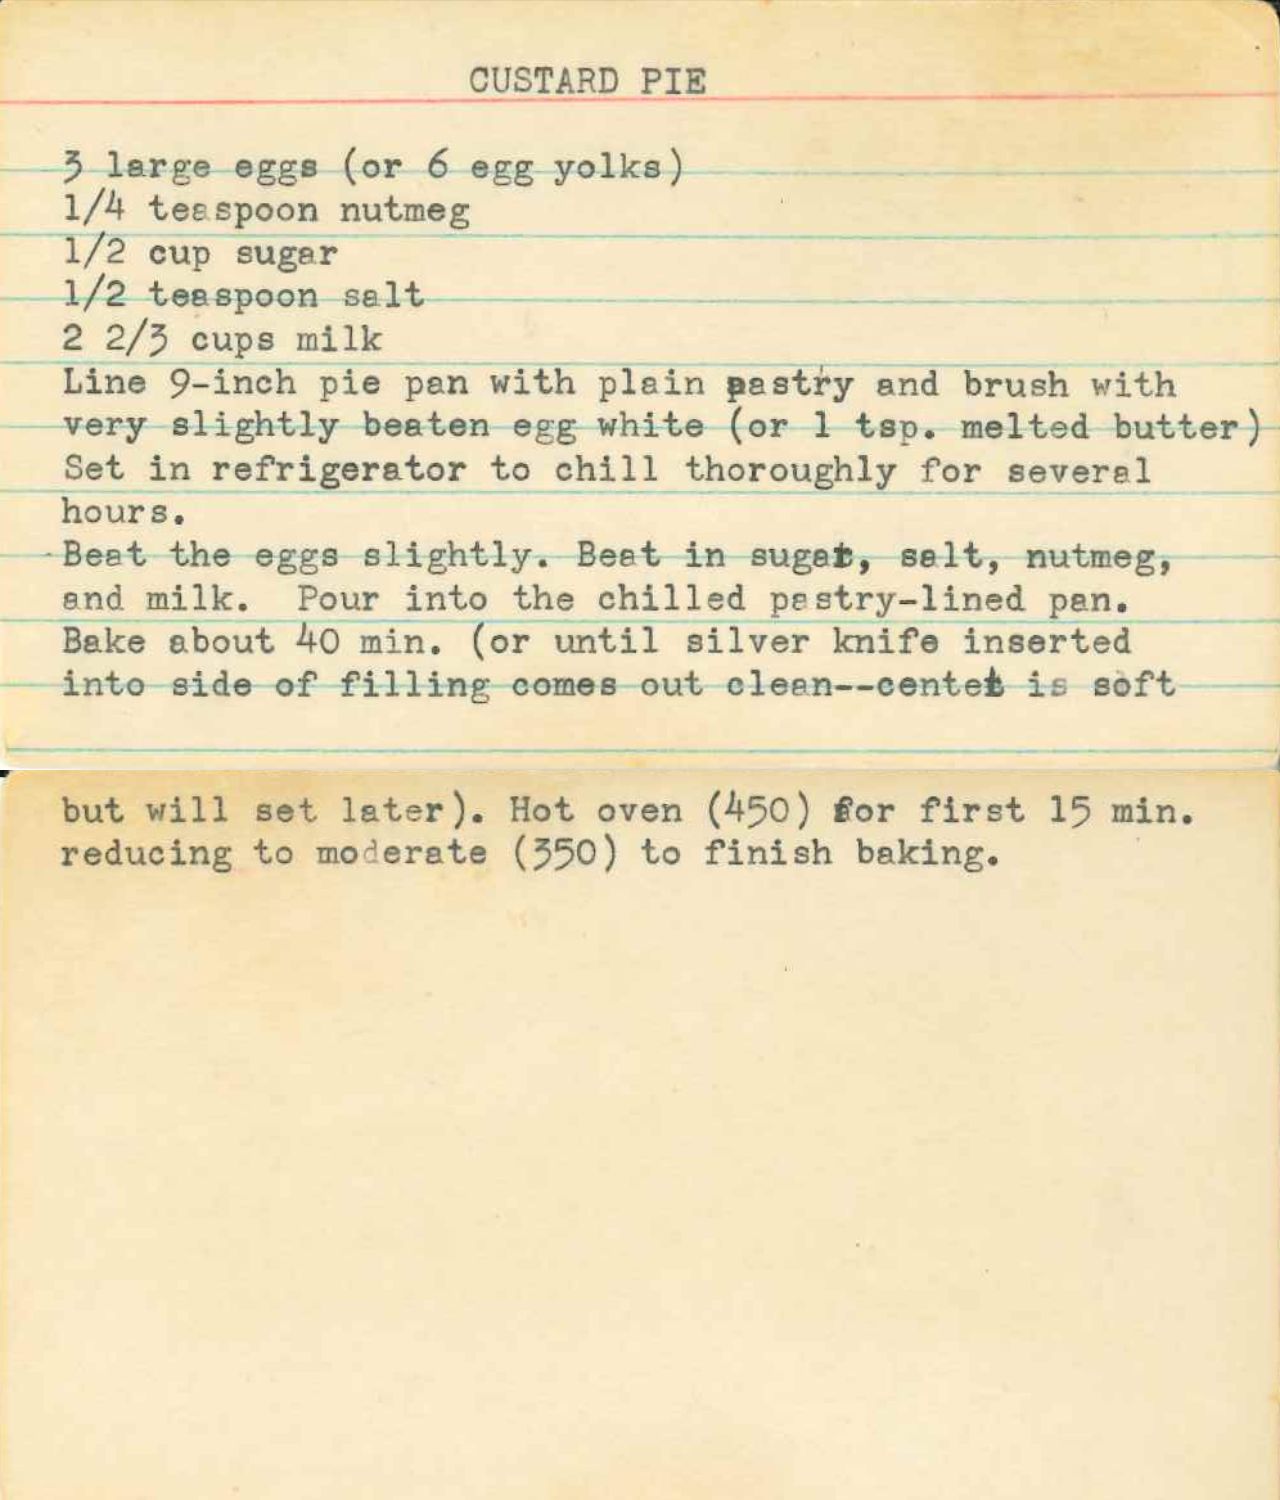 CUSTARD PIE
3 large eggs (or 6 egg yolks)
1/4 teaspoon nutmeg
1/2 cup sugar
1/2 teaspoon salt
2 2/3 cups milk
Line 9-inch pie pan with plain pastry and brush with
very slightly beaten egg white (or 1 tsp. melted butter)
Set in refrigerator to chill thoroughly for several
hours.
Beat the eggs slightly. Beat in sugar, salt, nutmeg,
and milk.  Pour into the chilled pastry-lined pan.
Bake about 40 min. (or until silver knife inserted
into side of filling comes out clean--center is soft
but will set later). Hot oven (450) for first 15 min.
reducing to moderate (350) to finish baking.